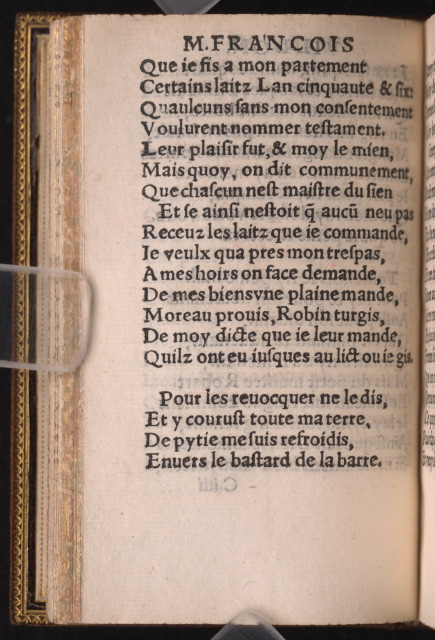 M. FRANCOIS
Que ie fis a mon partement
Certains laitz Lan cinquaute & six:
Quaulcuns sans mon consentement
Voulurent nommer testament.
Leur plaisir fut, & moy le mien,
Mais quoy, on dit communement,
Que chascun nest maistre du sien
Et se ainsi nestoit q̃ aucũ neu pas
Receuz les laitz que ie commande,
Ie veulx qua pres mon trespas,
A mes hoirs on face demande,
De mes biens vne plaine mande,
Moreau prouis, Robin turgis,
De moy dicte que ie leur mande,
Quilz ont eu iusques au lict ou ie gis.
Pour les reuocquer ne le dis,
Et y courust toute ma terre,
De pytie me suis refroidis,
Enuers le bastard de la barre.